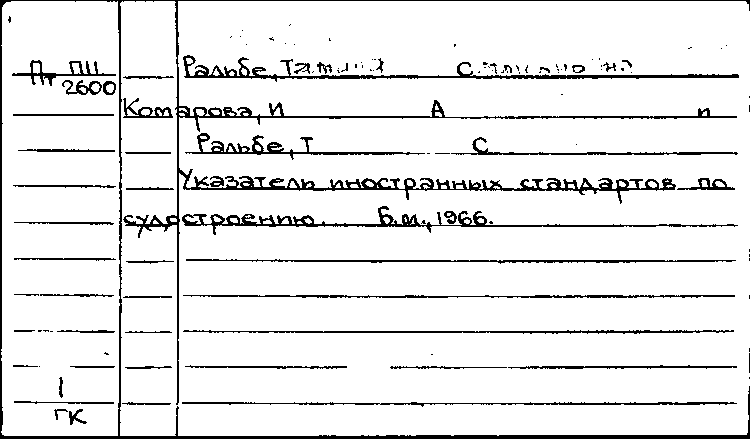 Ральбе,
Пт ПII
2600
Комарова, И А и
Ральбе, Т С
Указатель иностранных стандартов по
судостроению. Б.м., 1966.
1
ГК